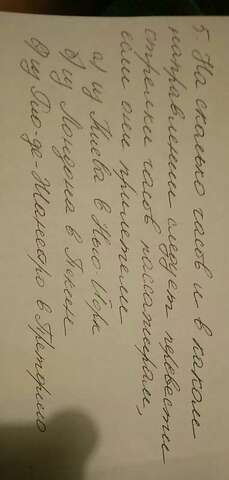 5. На сколько часов и в каком
направлении следует перевести
стрелки часов пассажирам,
если они прилетели
а) из Киева в Нью Йорк
б) из Лондона в Пекин
в) из Рио-де-Жанейро в Преторию